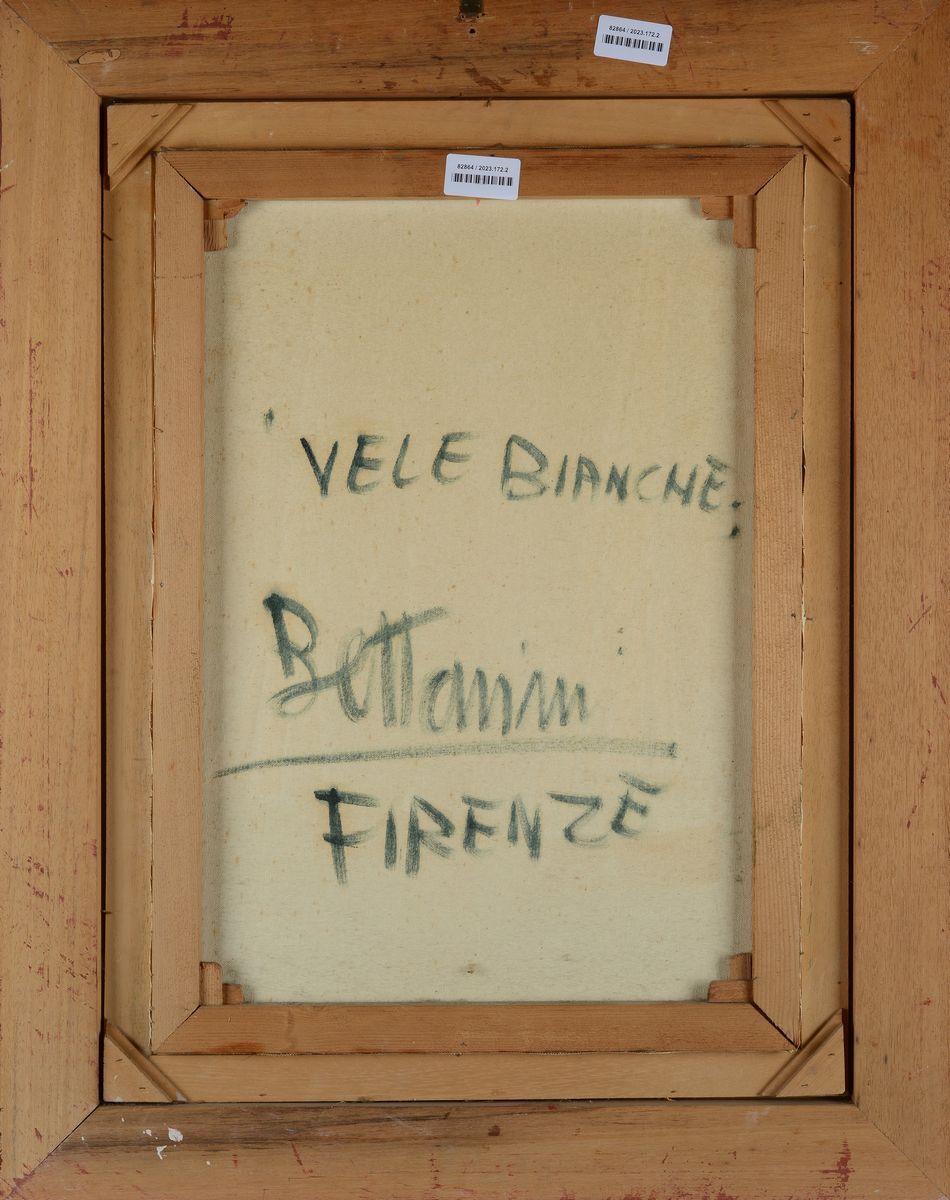 82864 / 2023.172.2
82864 / 2023.172.2
' VELE BIANCHE.'
Bettanini
FIRENZE